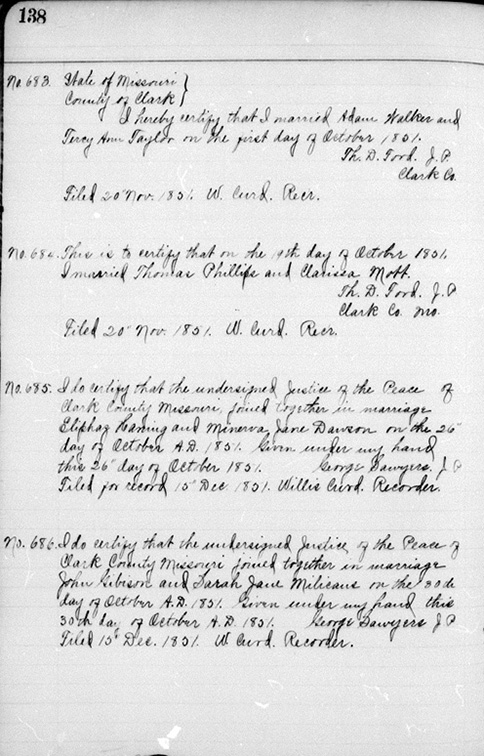 138
No. 683. State of Missouri }
County of Clark }
I hereby certify that I married Adam Walker and
Tercy Ann Taylor on the first day of October 1851.
Th. D. Ford. J. P.
Clark Co.
Filed 20" Nov. 1851. W. Curd. Recr.
No. 684. This is to certify that on the 19th day of October 1851.
I married Thomas Phillips and Clarissa Mott.
Th. D. Ford. J. P
Clark Co. Mo.
Filed 20" Nov. 1851. W. Curd. Recr.
No. 685. I do certify that the undersigned Justice of the Peace of
Clark County Missouri, joined together in marriage
Eliphaz Haning and Minerva Jane Dawson on the 26"
day of October A.D. 1851. Given under my hand
this 26" day of October 1851. George Sawyers. J P
Filed for record 15" Dec. 1851. Willis Curd. Recorder.
No. 686. I do certify that the undersigned Justice of the Peace of
Clark County Missouri joined together in marriage
John Gibison and Sarah Jane Milicans on the 30th
day of October A.D. 1851. Given under my hand this
30th day of October A.D. 1851. George Sawyers J P
Filed 15" Dec. 1851. W Curd. Recorder.